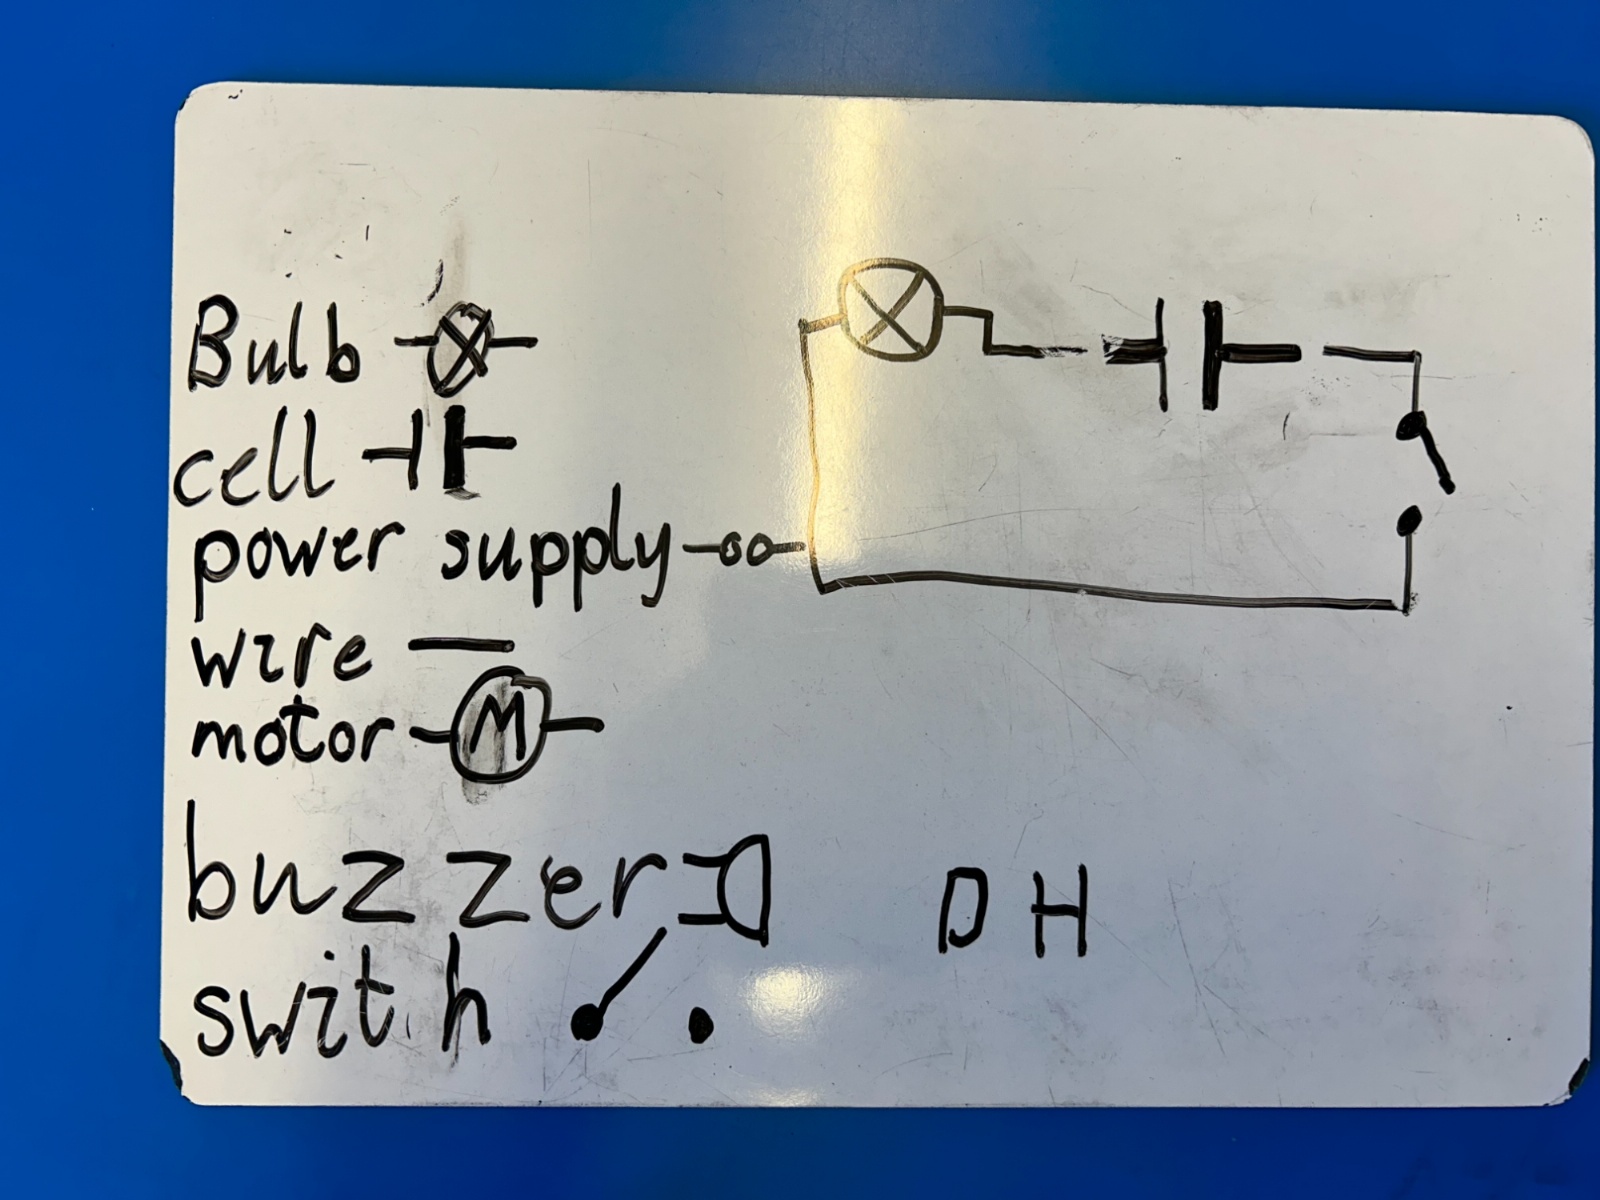 Bulb
cell
power supply
wire
motor M
buzzer
swith
DH